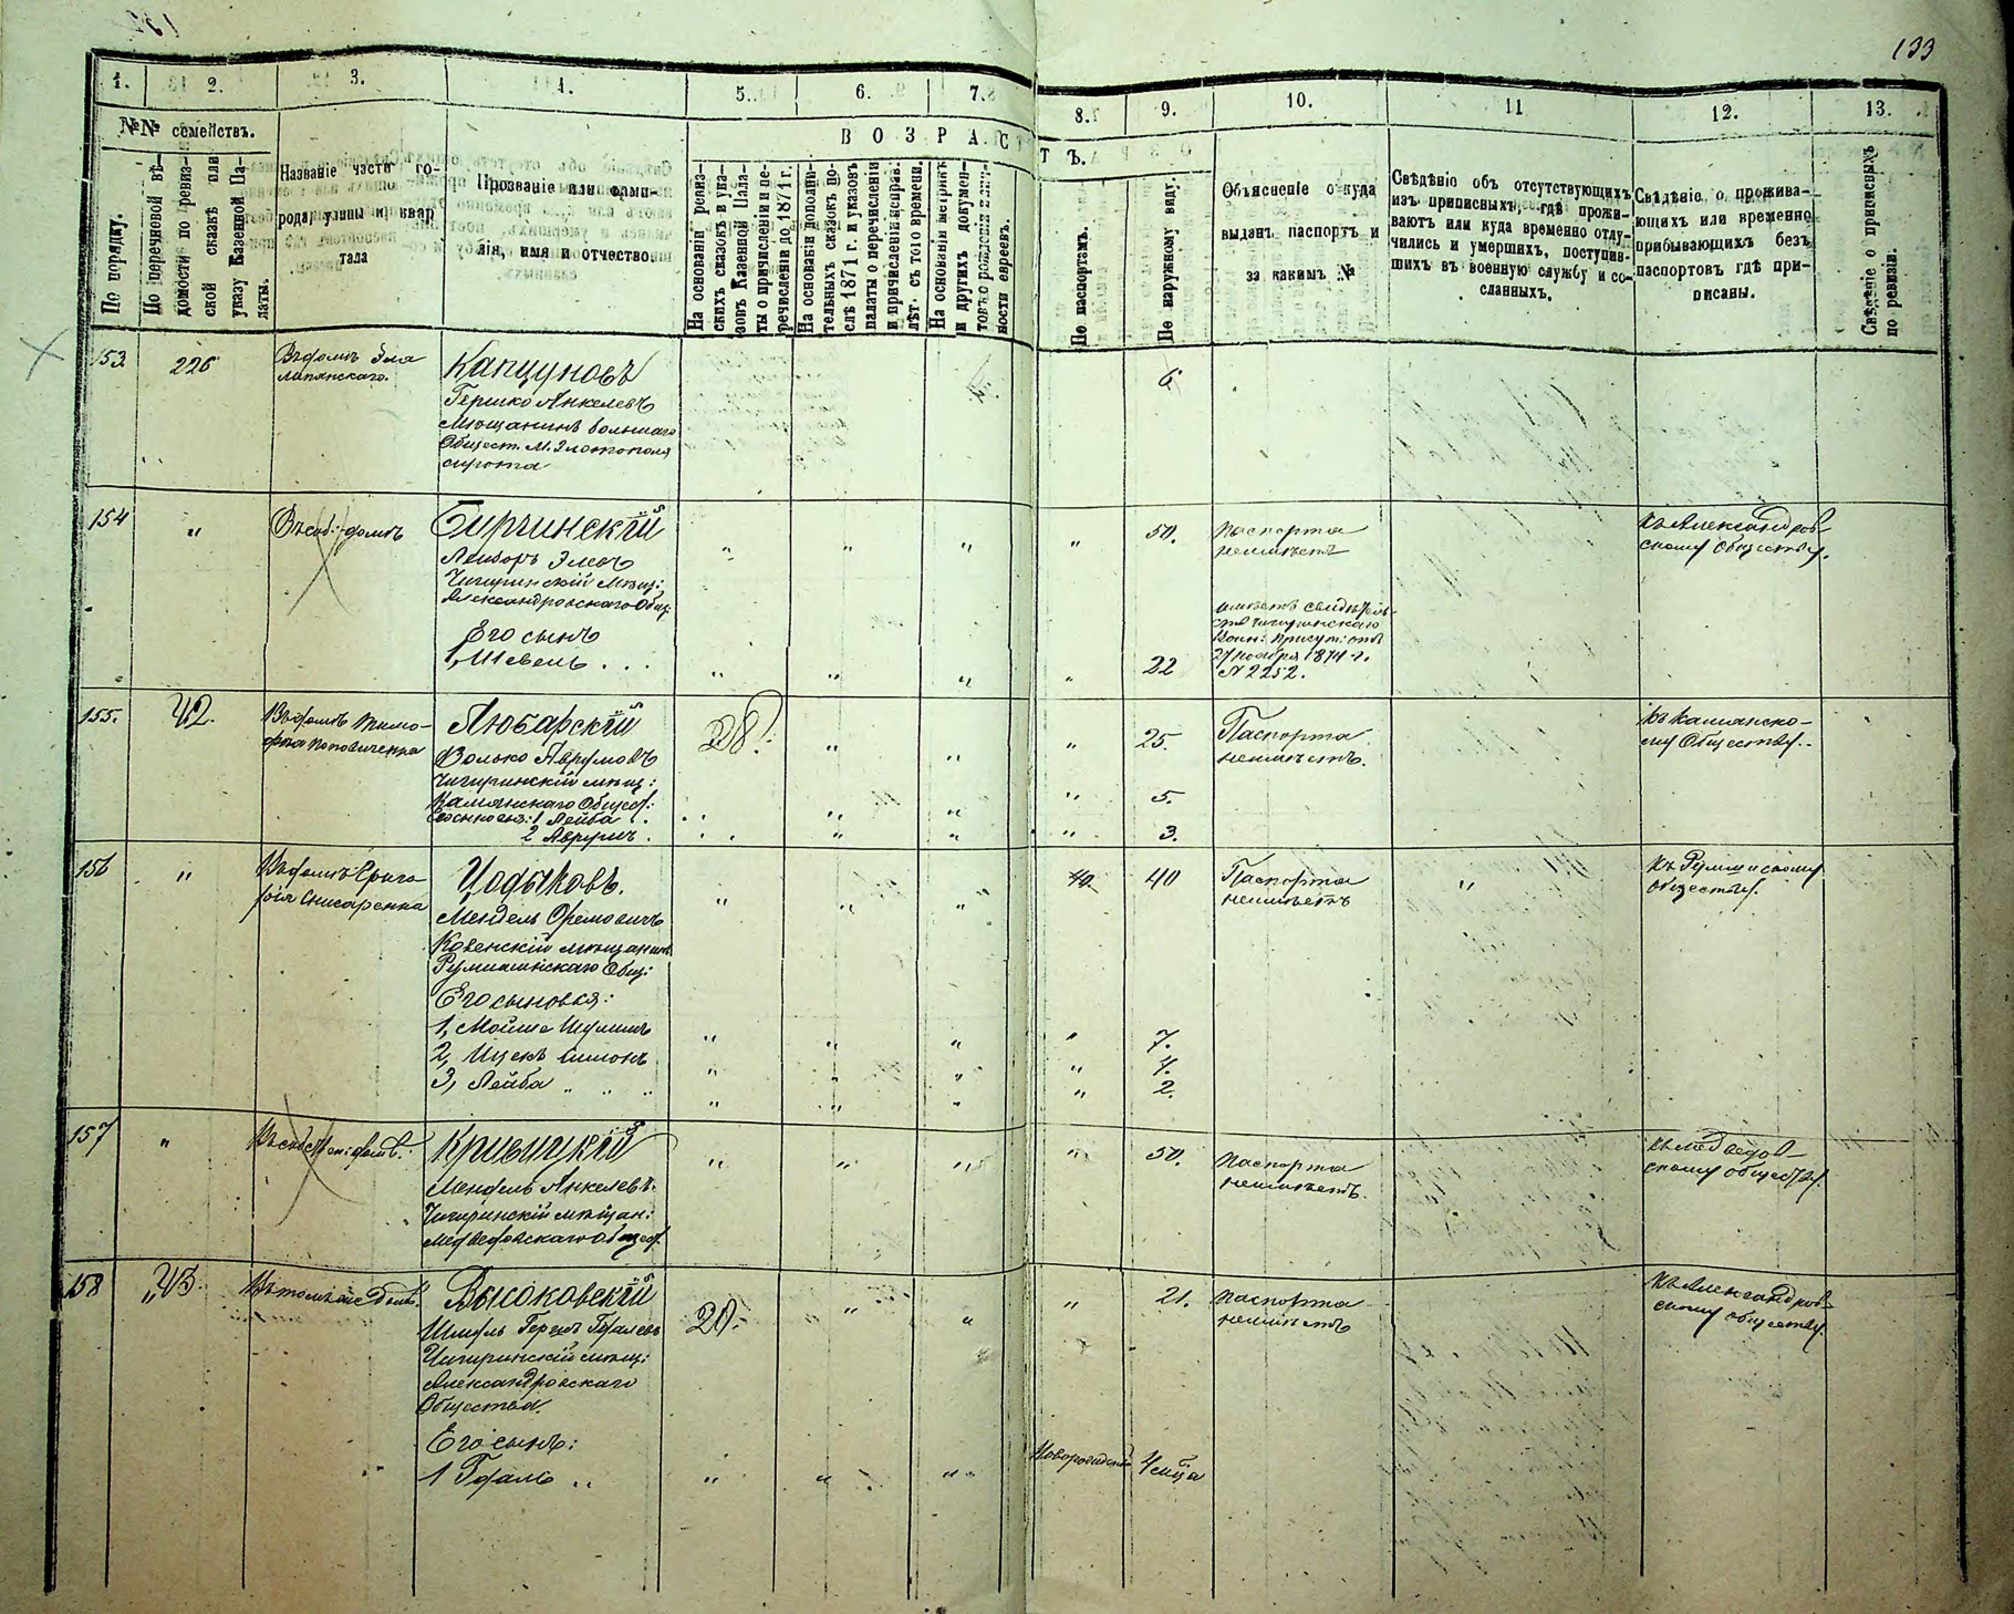 133
1.
2.
3.
4.
5.
6.
7.
8.
9.
10.
11
12.
13.
№№ семействъ.
По порядку.
По перечневой вѣ-
домости по ревиз-
ской сказкѣ или
указу Казенной Па-
латы.
Названіе части го-
рода, улицы и квар
тала
Прозваніе или фами-
лія, имя и отчество
ВОЗРАСТЪ.
На основаніи ревиз-
скихъ сказокъ и ука-
зовъ Казенной Пала-
ты о причисленіи и пе-
речисленіе до 1871 г.
На основаніи дополни-
тельныхъ сказокъ по-
слѣ 1871 г. и указовъ
палаты о перечисленіи
и причисленіи исправ.
лѣт. съ того времени.
На основаніи метрикъ
и другихъ докумен-
товъ о рожденіи
ности евреевъ.
По паспортамъ.
По наружному виду.
Объясненіе откуда
выданъ паспортъ и
за какимъ №
Свѣдѣніе объ отсутствующихъ
изъ приписныхъ, гдѣ прожи-
ваютъ или куда временно отлу-
чились и умершихъ, поступив-
шихъ въ военную службу и со-
сланныхъ.
Свѣдѣніе о прожива-
ющихъ или временно
прибывающихъ безъ
паспортовъ гдѣ при-
писаны.
Свѣдѣніе о приписныхъ
по ревизіи.
153
226
Въ домѣ Эля
Липянскаго.
Капцуновъ
Гершко Янкелевъ
Мѣщанинъ вольнаго
Общест. М. Златополя
сирота
6
154
"
Въ соб: домѣ
Бирчинскій
Лейзоръ Элевъ
Чигиринскій мѣщ:
Александровскаго Общ:
Его сынъ
1, Шевель . . .
50.
22
Паспорта
неимѣетъ
имѣетъ свидѣтель-
ство Чигиринскаго
Воин: Присут: отъ
27 ноября 1874 г.
№ 2252.
Къ Александров-
скому обществу.
155.
42.
Въ домѣ Тимо-
фея Поповиченка
Любарскій
Волько Аврумовъ
Чигиринскій мѣщ:
Камянскаго Общес.:
Его сыновья: 1 Лейба .
2 Аврумъ .
28.
25.
5.
3.
Паспорта
неимѣетъ.
Къ Камянско-
му Обществу.
156
"
Въ домѣ Григо-
рія Снисаренка
Цодыковъ.
Мендель Фремовичъ
Ковенскій мѣщанинъ
Румшишскаго Общ:
Его сыновья:
1, Мойше Шулимъ
2, Ицекъ Симонъ
3, Лейба " " "
40
40
7.
4.
2.
Паспорта
неимѣетъ
"
Къ Румшискому
обществу.
157
"
Въ собствен: домѣ.
Кривицкій
Мендель Янкелевъ.
Чигиринскій мѣщан:
Медведовскаго Общест.
50.
Паспорта
неимѣетъ.
Къ Медведов-
скому обществу.
158
43.
Въ томъ же домѣ.
Высоковскій
Шмуль Герцъ Гдалевъ
Чигиринскій мѣщ:
Александровскаго
Общества.
Его сынъ:
1 Гдаль ..
20.
21.
Паспорта
неимѣетъ
Къ Александров-
скому обществу.
Новорожденный
4 мѣсца